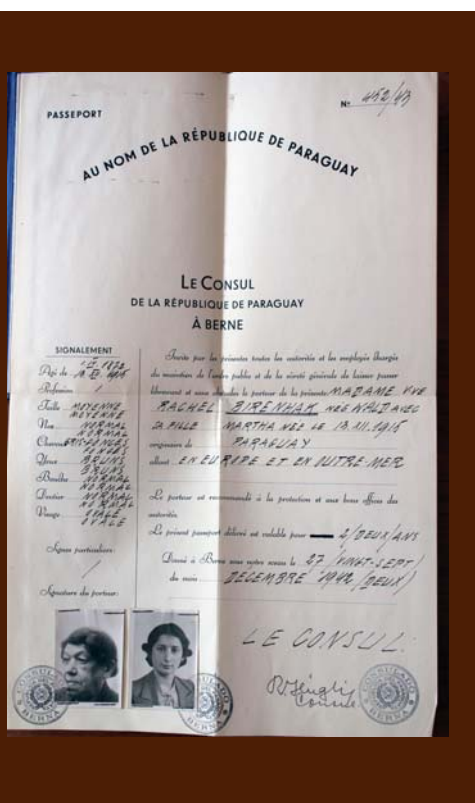 PASSEPORT
No 452/43
AU NOM DE LA RÉPUBLIQUE DE PARAGUAY
LE CONSUL
DE LA RÉPUBLIQUE DE PARAGUAY
À BERNE
SIGNALEMENT
Agé de
Profession /
Taille MOYENNE
MOYENNE
Nez NORMAL
NORMAL
Cheveux GRIS-FONCES
FONCES
Yeux BRUNS
BRUNS
Bouche NORMAL
NORMAL
Dentier NORMAL
NORMAL
Visage OVALE
OVALE
Signes particuliers:
/
Signature du porteur:
Invite par les présentes toutes les autorités et les employés chargés
du maintien de l'ordre public et de la sûreté générale de laisser passer
librement et sous le porteur de la présente MADAME VVE
RACHEL BIRENHAK NEE
SA FILLE MARTHA NEE LE 13.III.1915
originaire de PARAGUAY
allant EN EUROPE ET EN OUTRE-MER
Le porteur est recommandé à la protection et aux bons offices des
autorités.
Le présent passeport délivré est valable pour 2/DEUX/ANS
Donné à Berne sous notre sceau le 27 /VINGT-SEPT/
du mois DECEMBRE 1942 /DEUX/
LE CONSUL:
Consul
CONSULADO
BERNA
CONSULADO
BERNA
CONSULADO
BERNA